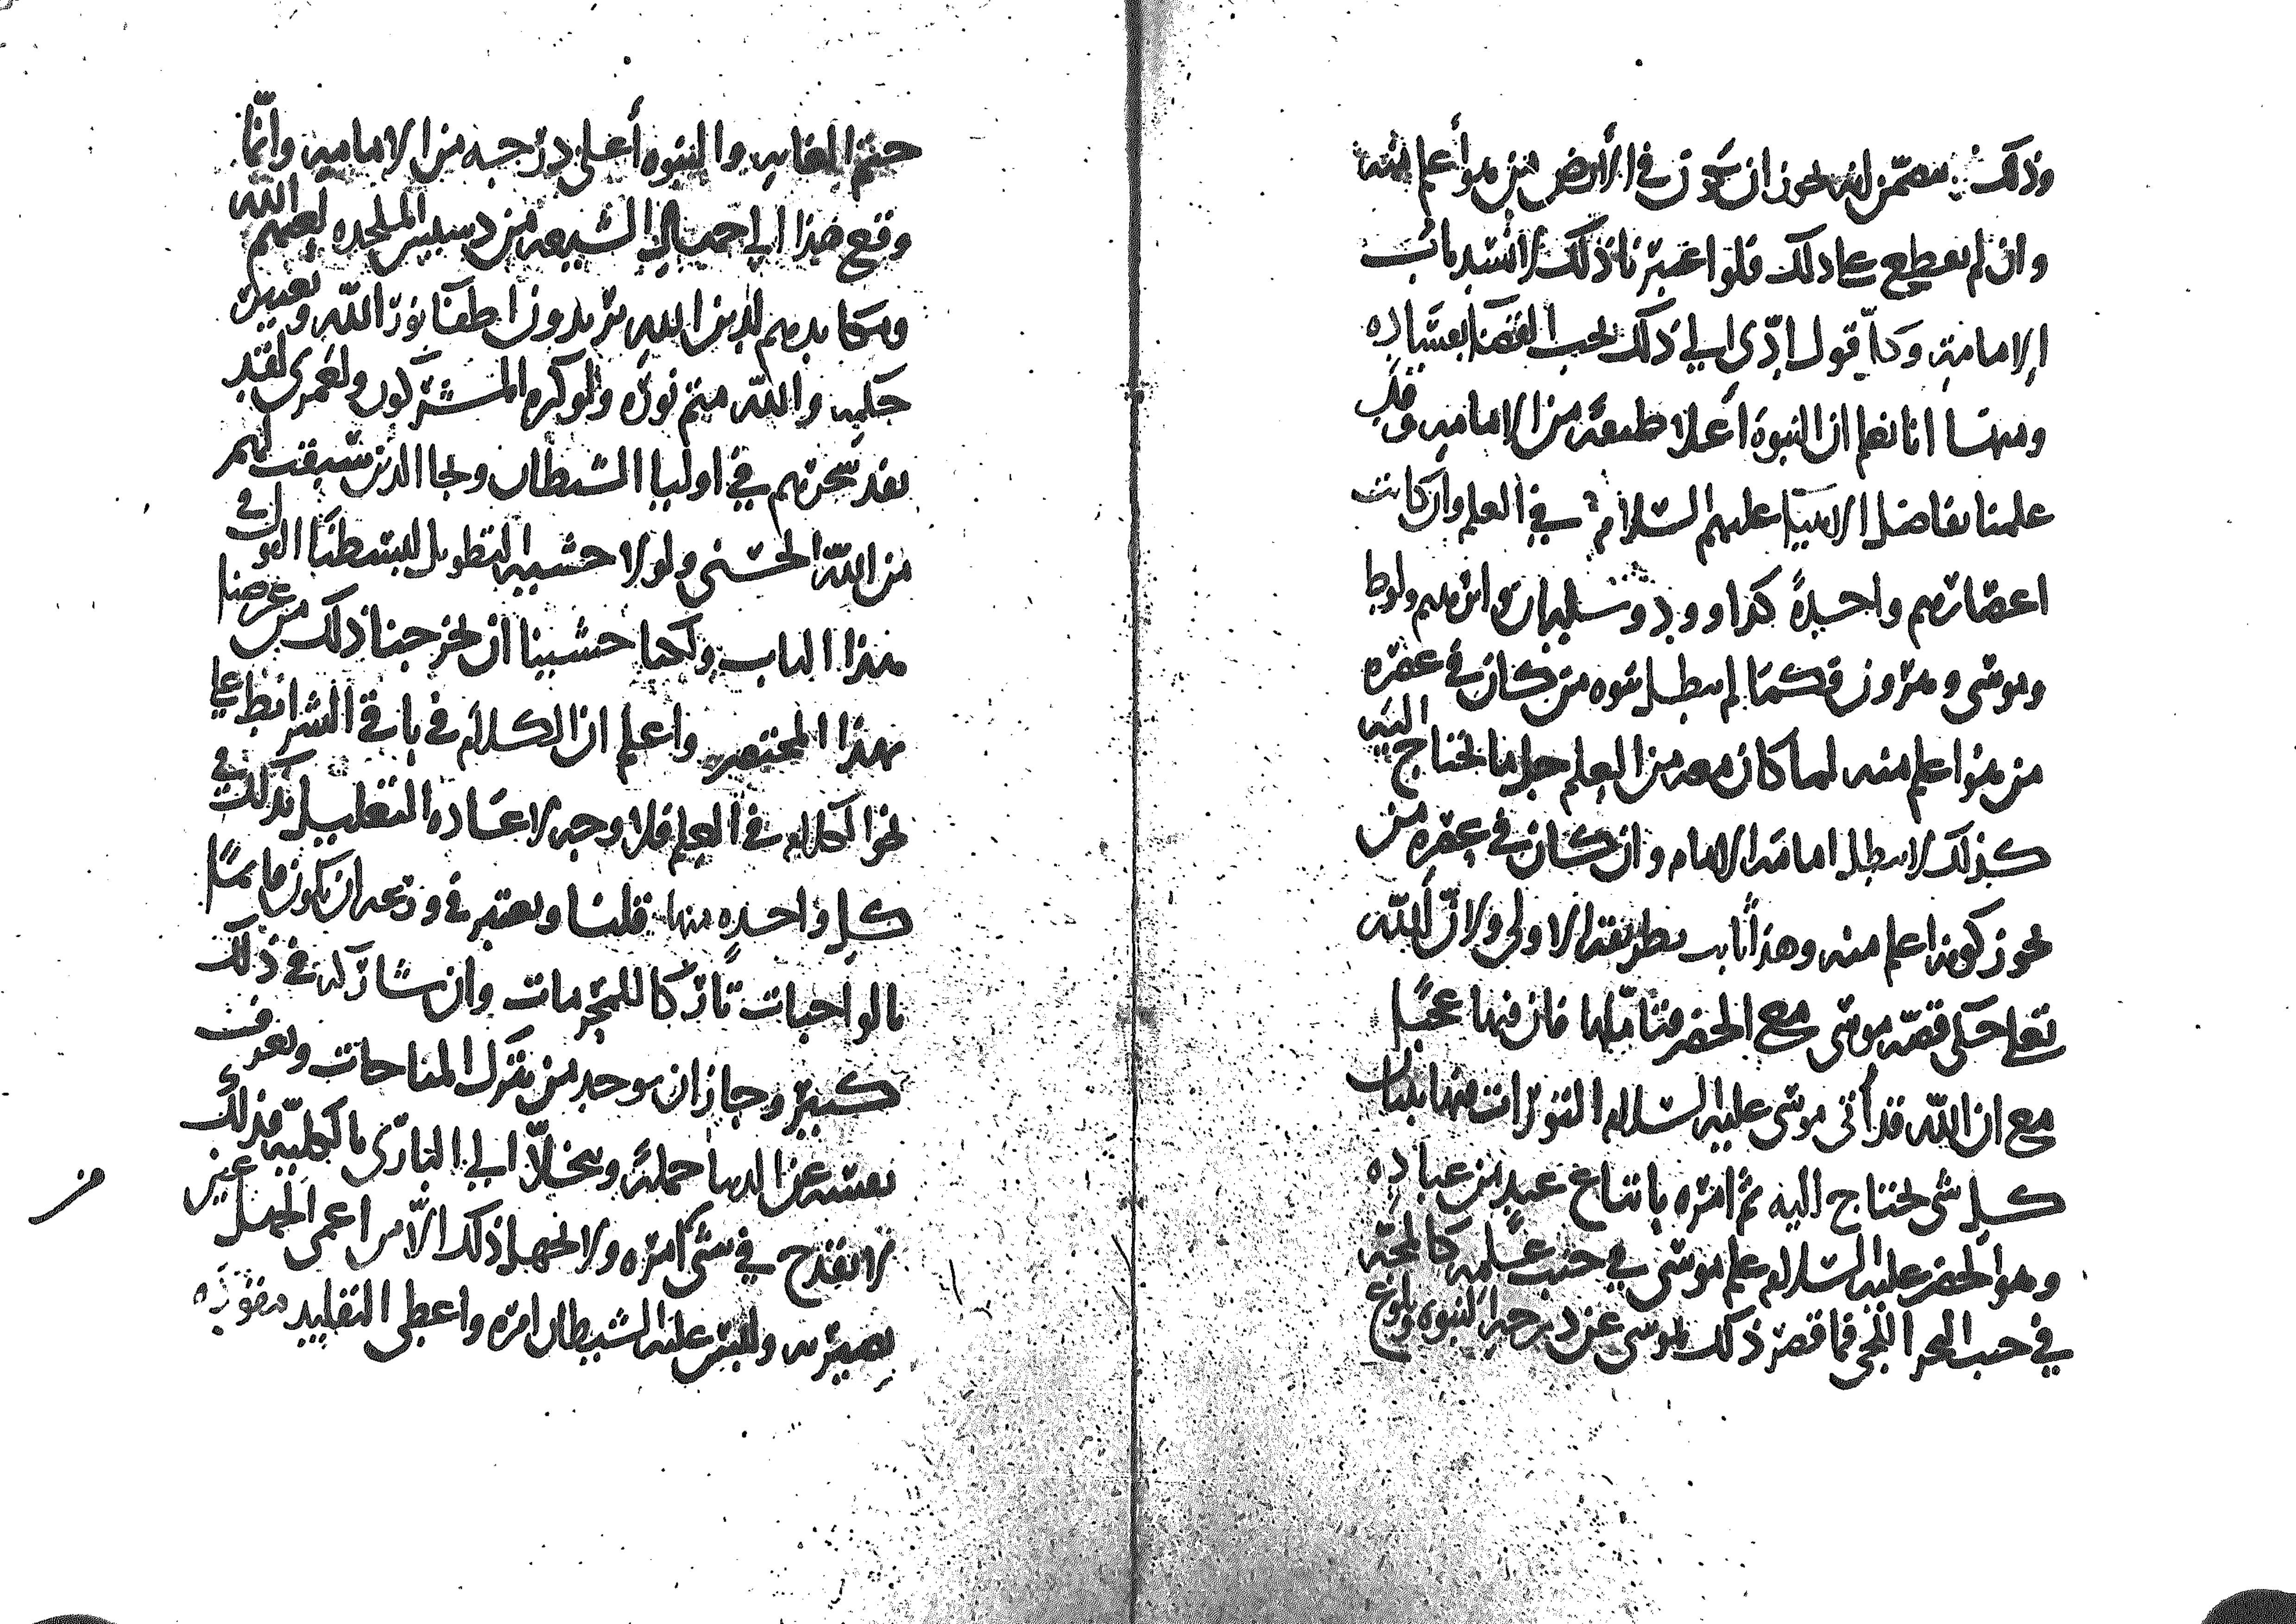 وذلك يتضمن انه يجوز ان يكون في الأرض من هو أعلم منه
وان لم نقطع على ذلك فلو اعتبرنا ذلك لانسد باب
الإمامة وكل قول ادى الى ذلك يجب القضا بفساده
ومنها انا نعلم ان النبوة أعلا طبقة من الامامة وقد
علمنا تفاضل الانبيا عليهم السلام في العلم وان كانت
اعصارهم واحدةً كداوود وسليمان وابرهيم ولوط
وموسى وهرون فكما لم تبطل نبوه من كان في عصره
من هو اعلم منه لما كان معه من العلم جل ما يحتاج اليه
كذلك لا تبطل امامة الامام وان كان في عصره من
يجوز كونه اعلم منه وهذا ثابت بطريقة الاولى ولان الله
تعلى حكى قصة موسى مع الخضر فتأملها فان فيها عجبًا
مع ان الله قد أتى موسى عليه السلام التورات فيها بيان
كل شي يحتاج اليه ثم امره باتباع عبد من عباده
وهو الخضر عليه السلام علم موسى في جنب علمه كالمجة
في جنب البحر اللجي فما قصر ذلك بموسى عن درجة النبوه وبلوغ
ختم الغايه والنبوه أعلى درجه من الامامه وانما
وقع هذا الى جهال الشيعه من دسيس الملحده لعنهم الله
ومكايدهم لدين الله يريدون اطفآ نور الله وتغيير
حكمه والله متم نوره ولو كره المشركون ولعمري لقد
نفذ سحرهم في اوليا الشيطان ونجا الذين سبقت لهم
من الله الحسنى ولولا خشية التطويل لبسطنا القول في
هذا الباب ولكنا خشينا ان يخرجنا ذلك من غرضنا
بهذا المختصر واعلم ان الكلام في باقي الشرائط على
نحو الكلام في العلم فلا وجه لاعادة التعليل بذلك في
كل واحده منها قلنا ويعتبر في ورعه ان يكون قائمًا
بالواجبات تاركا للمحرمات وان شاركه في ذلك
كثير وجاز ان يوجد من يترك المباحات ويعزف
نفسه عن الدنيا جملةً ويتخلا الى الباري بالكلية فذلك غير
لا يقدح في شي امره ولا يجهل ذلك الا من اعمى الجهل
بصيرته ولبس عليه الشيطان امره واعطى التقليد مقوده